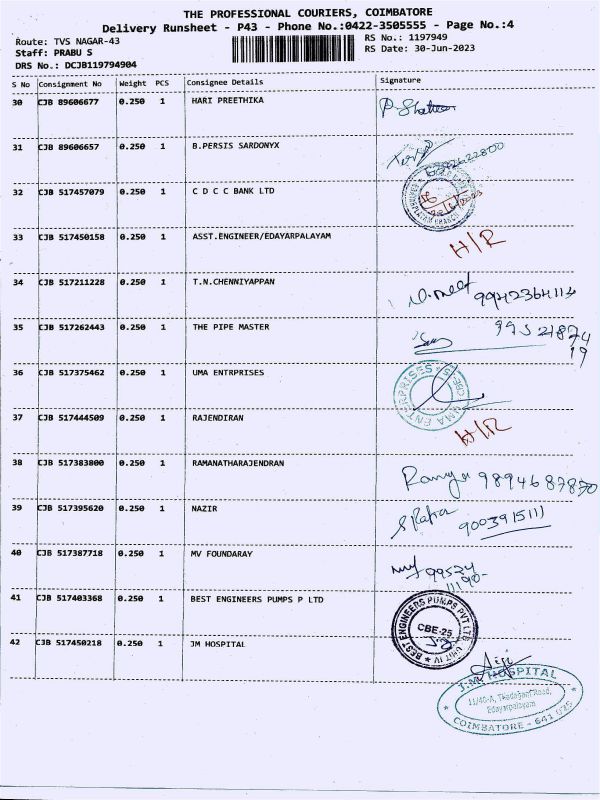 THE PROFESSIONAL COURIERS, COIMBATORE
Delivery Runsheet - P43 - Phone No.:0422-3505555 - Page No.:4
Route: TVS NAGAR-43
RS No.: 1197949
Staff: PRABU S
RS Date: 30-Jun-2023
DRS No.: DCJB119794904
S No Consignment No Weight PCS Consignee Details Signature
30 CJB 89606677 0.250 1 HARI PREETHIKA
31 CJB 89606657 0.250 1 B.PERSIS SARDONYX
32 CJB 517457079 0.250 1 C D C C BANK LTD
33 CJB 517450158 0.250 1 ASST.ENGINEER/EDAYARPALAYAM H/R
34 CJB 517211228 0.250 1 T.N.CHENNIYAPPAN
35 CJB 517262443 0.250 1 THE PIPE MASTER 99521874
19
36 CJB 517375462 0.250 1 UMA ENTRPRISES
UMA ENTERPRISES
37 CJB 517444509 0.250 1 RAJENDIRAN H/R
38 CJB 517383800 0.250 1 RAMANATHARAJENDRAN 9894687870
39 CJB 517395620 0.250 1 NAZIR 9003915111
40 CJB 517387718 0.250 1 MV FOUNDARAY 99524
11190-
41 CJB 517403368 0.250 1 BEST ENGINEERS PUMPS P LTD
BEST ENGINEERS PUMPS PVT LTD. UNIT IV
CBE-25
42 CJB 517450218 0.250 1 JM HOSPITAL
J.M. HOSPITAL
11/40-A, Thadagam Road,
Edayarpalayam
COIMBATORE - 641 025